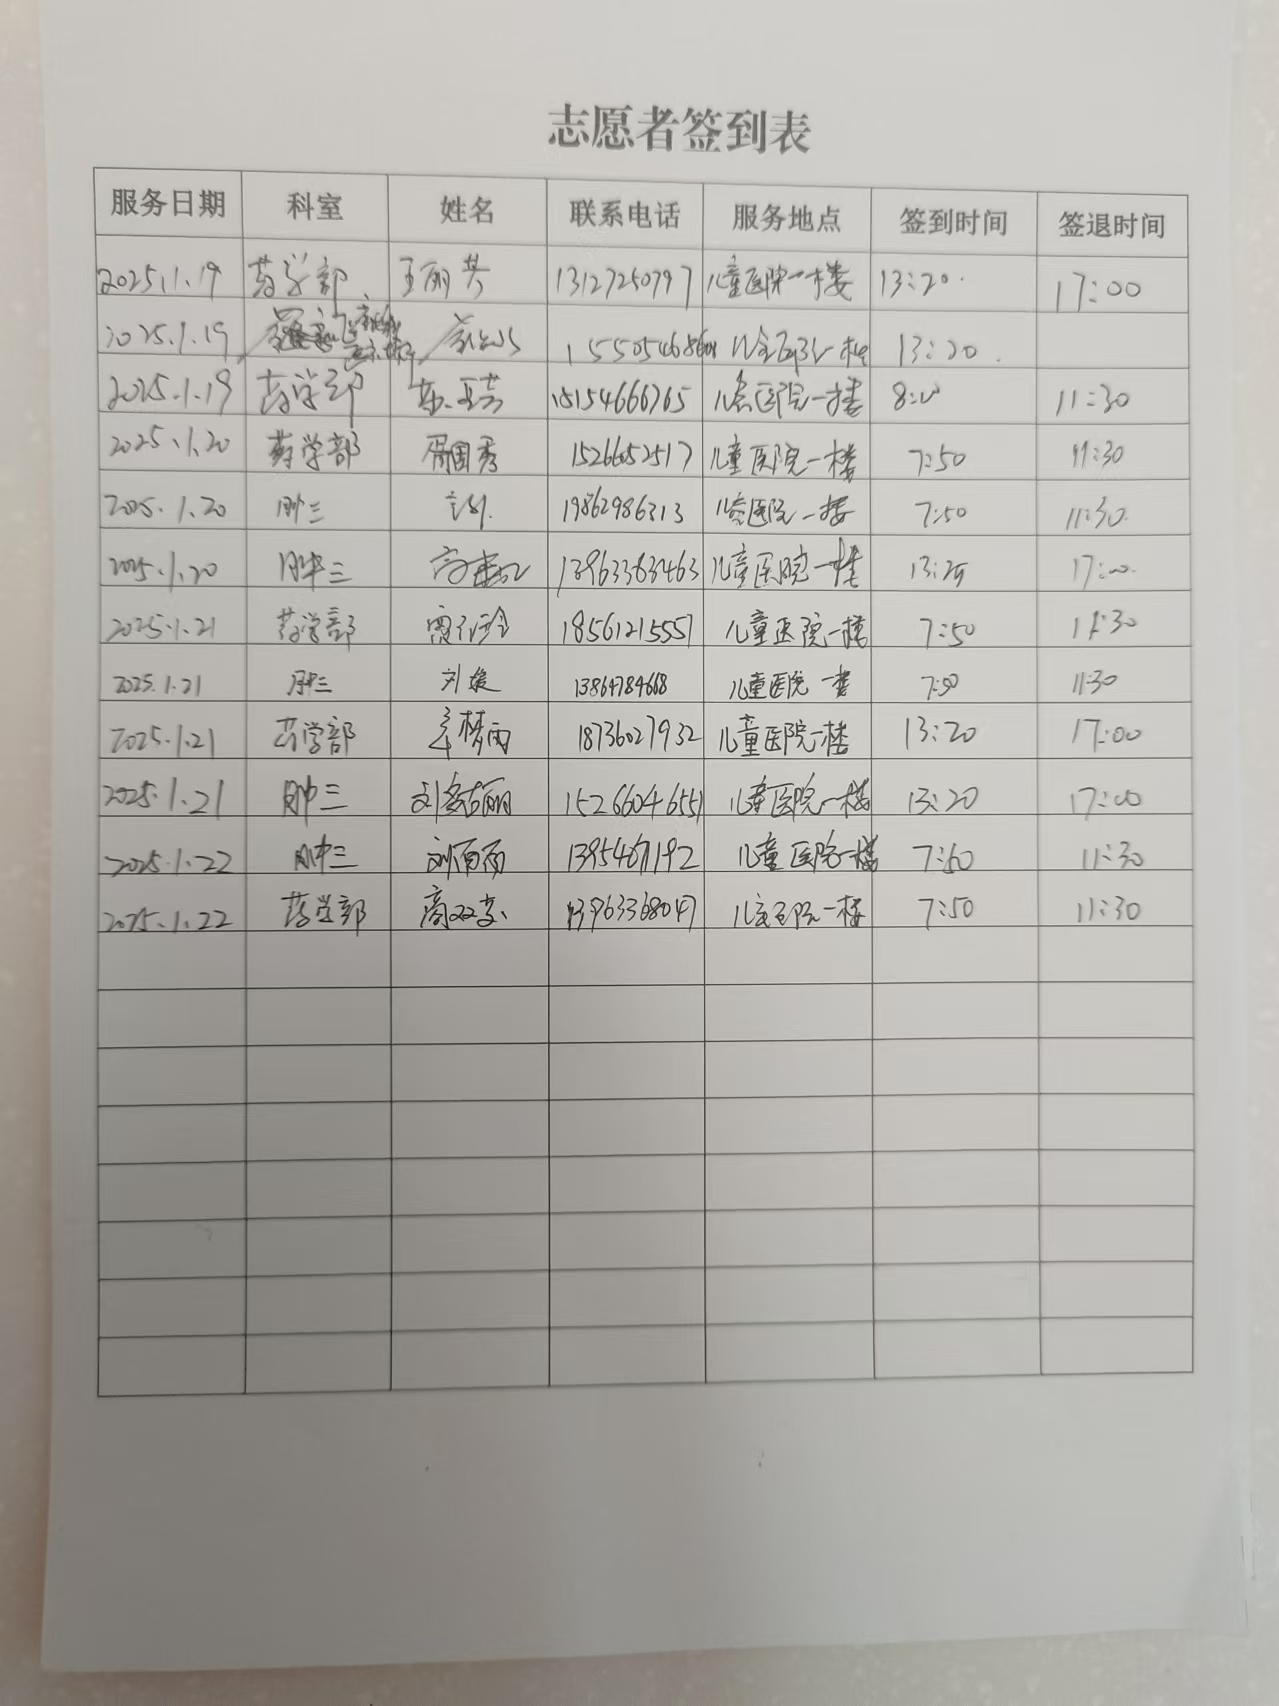 志愿者签到表
服务日期 科室 姓名 联系电话 服务地点 签到时间 签退时间
2025.1.19 药学部 王丽芬 13127250797 儿童医院一楼 13:20 17:00
2025.1.19 13:20
2025.1.19 药学部 15154666765 儿童医院一楼 8:00 11:30
2025.1.20 药学部 周国秀 15266052517 儿童医院一楼 7:50 11:30
2025.1.20 肿三 19862986313 儿童医院一楼 7:50 11:30
2025.1.20 肿三 13963363463 儿童医院一楼 13:20 17:00
2025.1.21 药学部 18561215557 儿童医院一楼 7:50 11:30
2025.1.21 肿三 刘媛 13864784668 儿童医院一楼 7:50 11:30
2025.1.21 药学部 辛梦雨 18736027932 儿童医院一楼 13:20 17:00
2025.1.21 肿三 15266046551 儿童医院一楼 13:20 17:00
2025.1.22 肿三 刘雨雨 13954671192 儿童医院一楼 7:50 11:30
2025.1.22 药学部 13963368047 儿童医院一楼 7:50 11:30